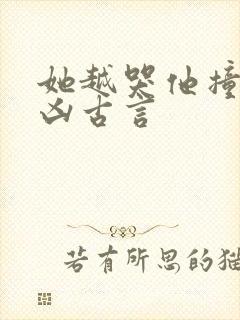 她越哭他撞
凶古言
若有所思的猫